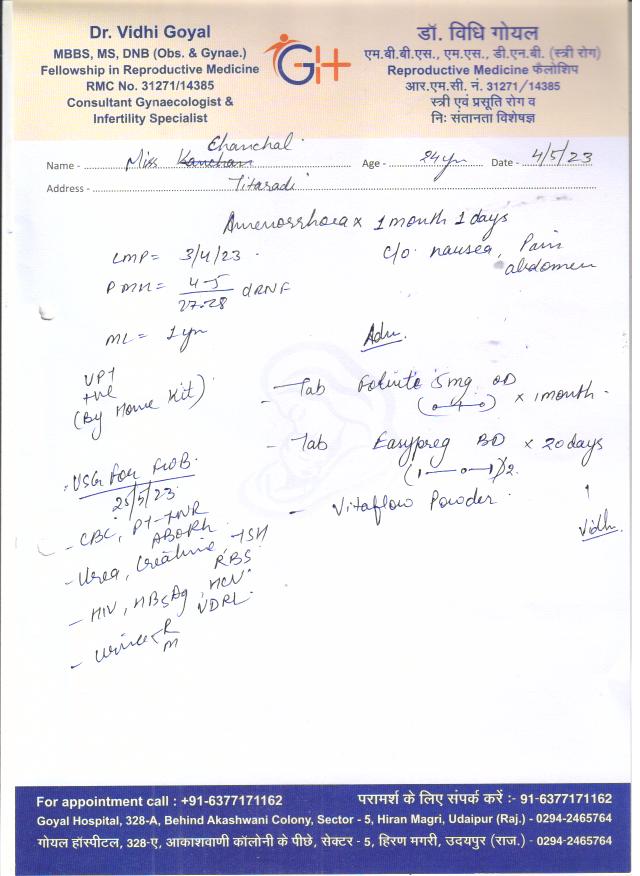 Dr. Vidhi Goyal
MBBS, MS, DNB (Obs. & Gynae.)
Fellowship in Reproductive Medicine
RMC No. 31271/14385
Consultant Gynaecologist &
Infertility Specialist
GH
डॉ. विधि गोयल
एम.बी.बी.एस., एम.एस., डी.एन.बी. (स्त्री रोग)
Reproductive Medicine फैलोशिप
आर.एम.सी. नं. 31271/14385
स्त्री एवं प्रसूति रोग व
निः संतानता विशेषज्ञ
Chanchal
Name - Miss Kanchan Age - 24 yrs Date - 4/5/23
Address - Titaradi
Amenorrhoea x 1 month 1 days
LMP = 3/4/23
c/o nausea, Pain abdomen
PMH = 4-5
27-28
ML = 1 yr
UPT
+ve
(By Home Kit)
Adv.
- Tab 5mg OD x 1 month
- Tab Easypreg BD x 20 days
- Vitaflow Powder
USG for
25/5/23
- CBC, PT-INR
ABORh
- Urea, Creatinine, TSH
RBS
- HIV, HBsAg, HCV
VDRL
- Urine R
M
Vidhi
For appointment call : +91-6377171162
परामर्श के लिए संपर्क करें :- 91-6377171162
Goyal Hospital, 328-A, Behind Akashwani Colony, Sector - 5, Hiran Magri, Udaipur (Raj.) - 0294-2465764
गोयल हॉस्पीटल, 328-ए, आकाशवाणी कॉलोनी के पीछे, सेक्टर - 5, हिरण मगरी, उदयपुर (राज.) - 0294-2465764